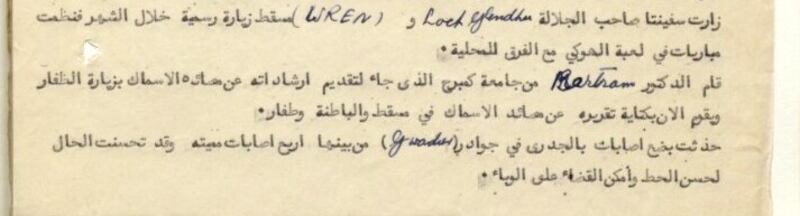 زارت سفينتا صاحب الجلالة Loch Glendhu و (WREN) مسقط زيارة رسمية خلال الشهر فنظمت
مباريات في لعبة الهوكي مع الفرق المحلية.
قام الدكتور Bertram من جامعة كمبرج الذى جاء لتقديم ارشاداته عن مصائد الاسماك بزيارة الظفار
ويقوم الان بكتابة تقريره عن مصائد الاسماك في مسقط والباطنة وظفار.
حدثت بضع اصابات بالجدرى في جوادر (Gwadur) من بينها اربع اصابات مميته وقد تحسنت الحال
لحسن الحظ وأمكن القضاء على الوباء.